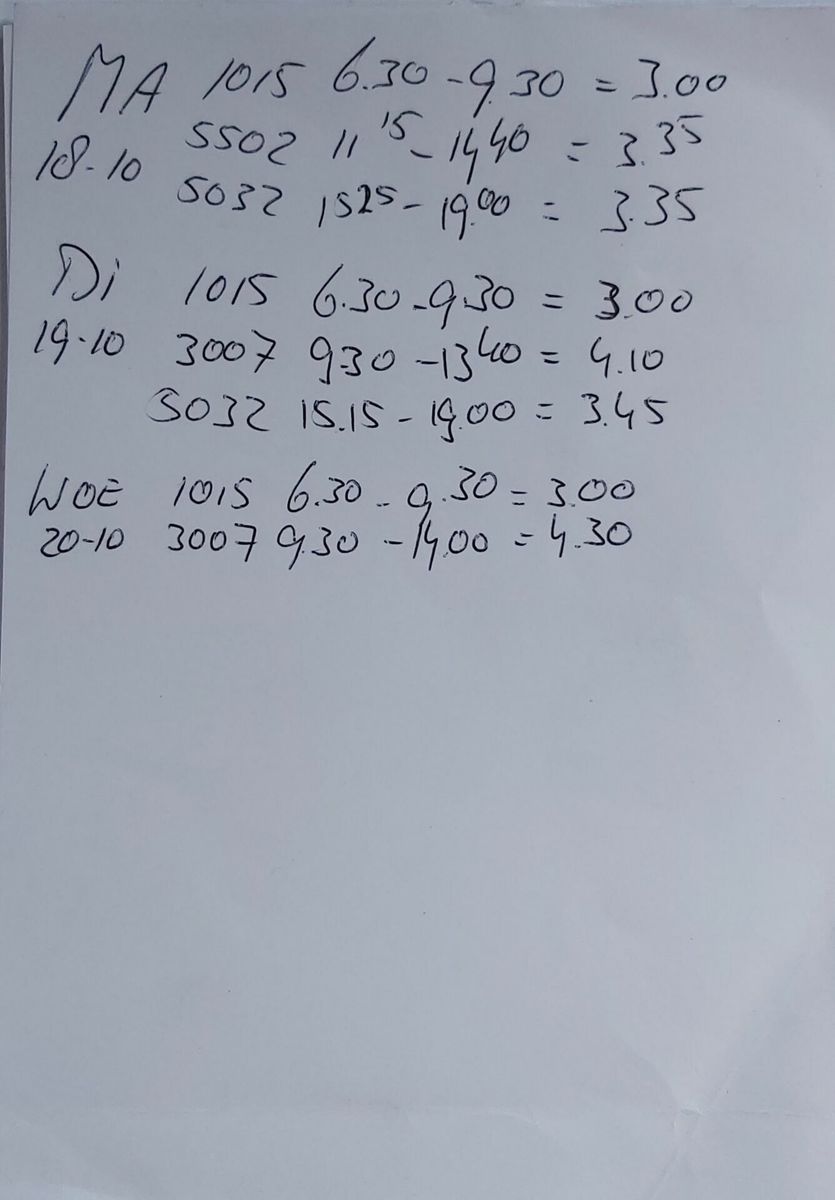 MA 1015 6.30 - 9.30 = 3.00
18-10 5502 11 15 - 14 40 = 3.35
5032 15 25 - 19.00 = 3.35
Di 1015 6.30 - 9.30 = 3.00
19-10 3007 9.30 - 13 40 = 4.10
5032 15.15 - 19.00 = 3.45
WOE 1015 6.30 - 9.30 = 3.00
20-10 3007 9.30 - 14.00 = 4.30